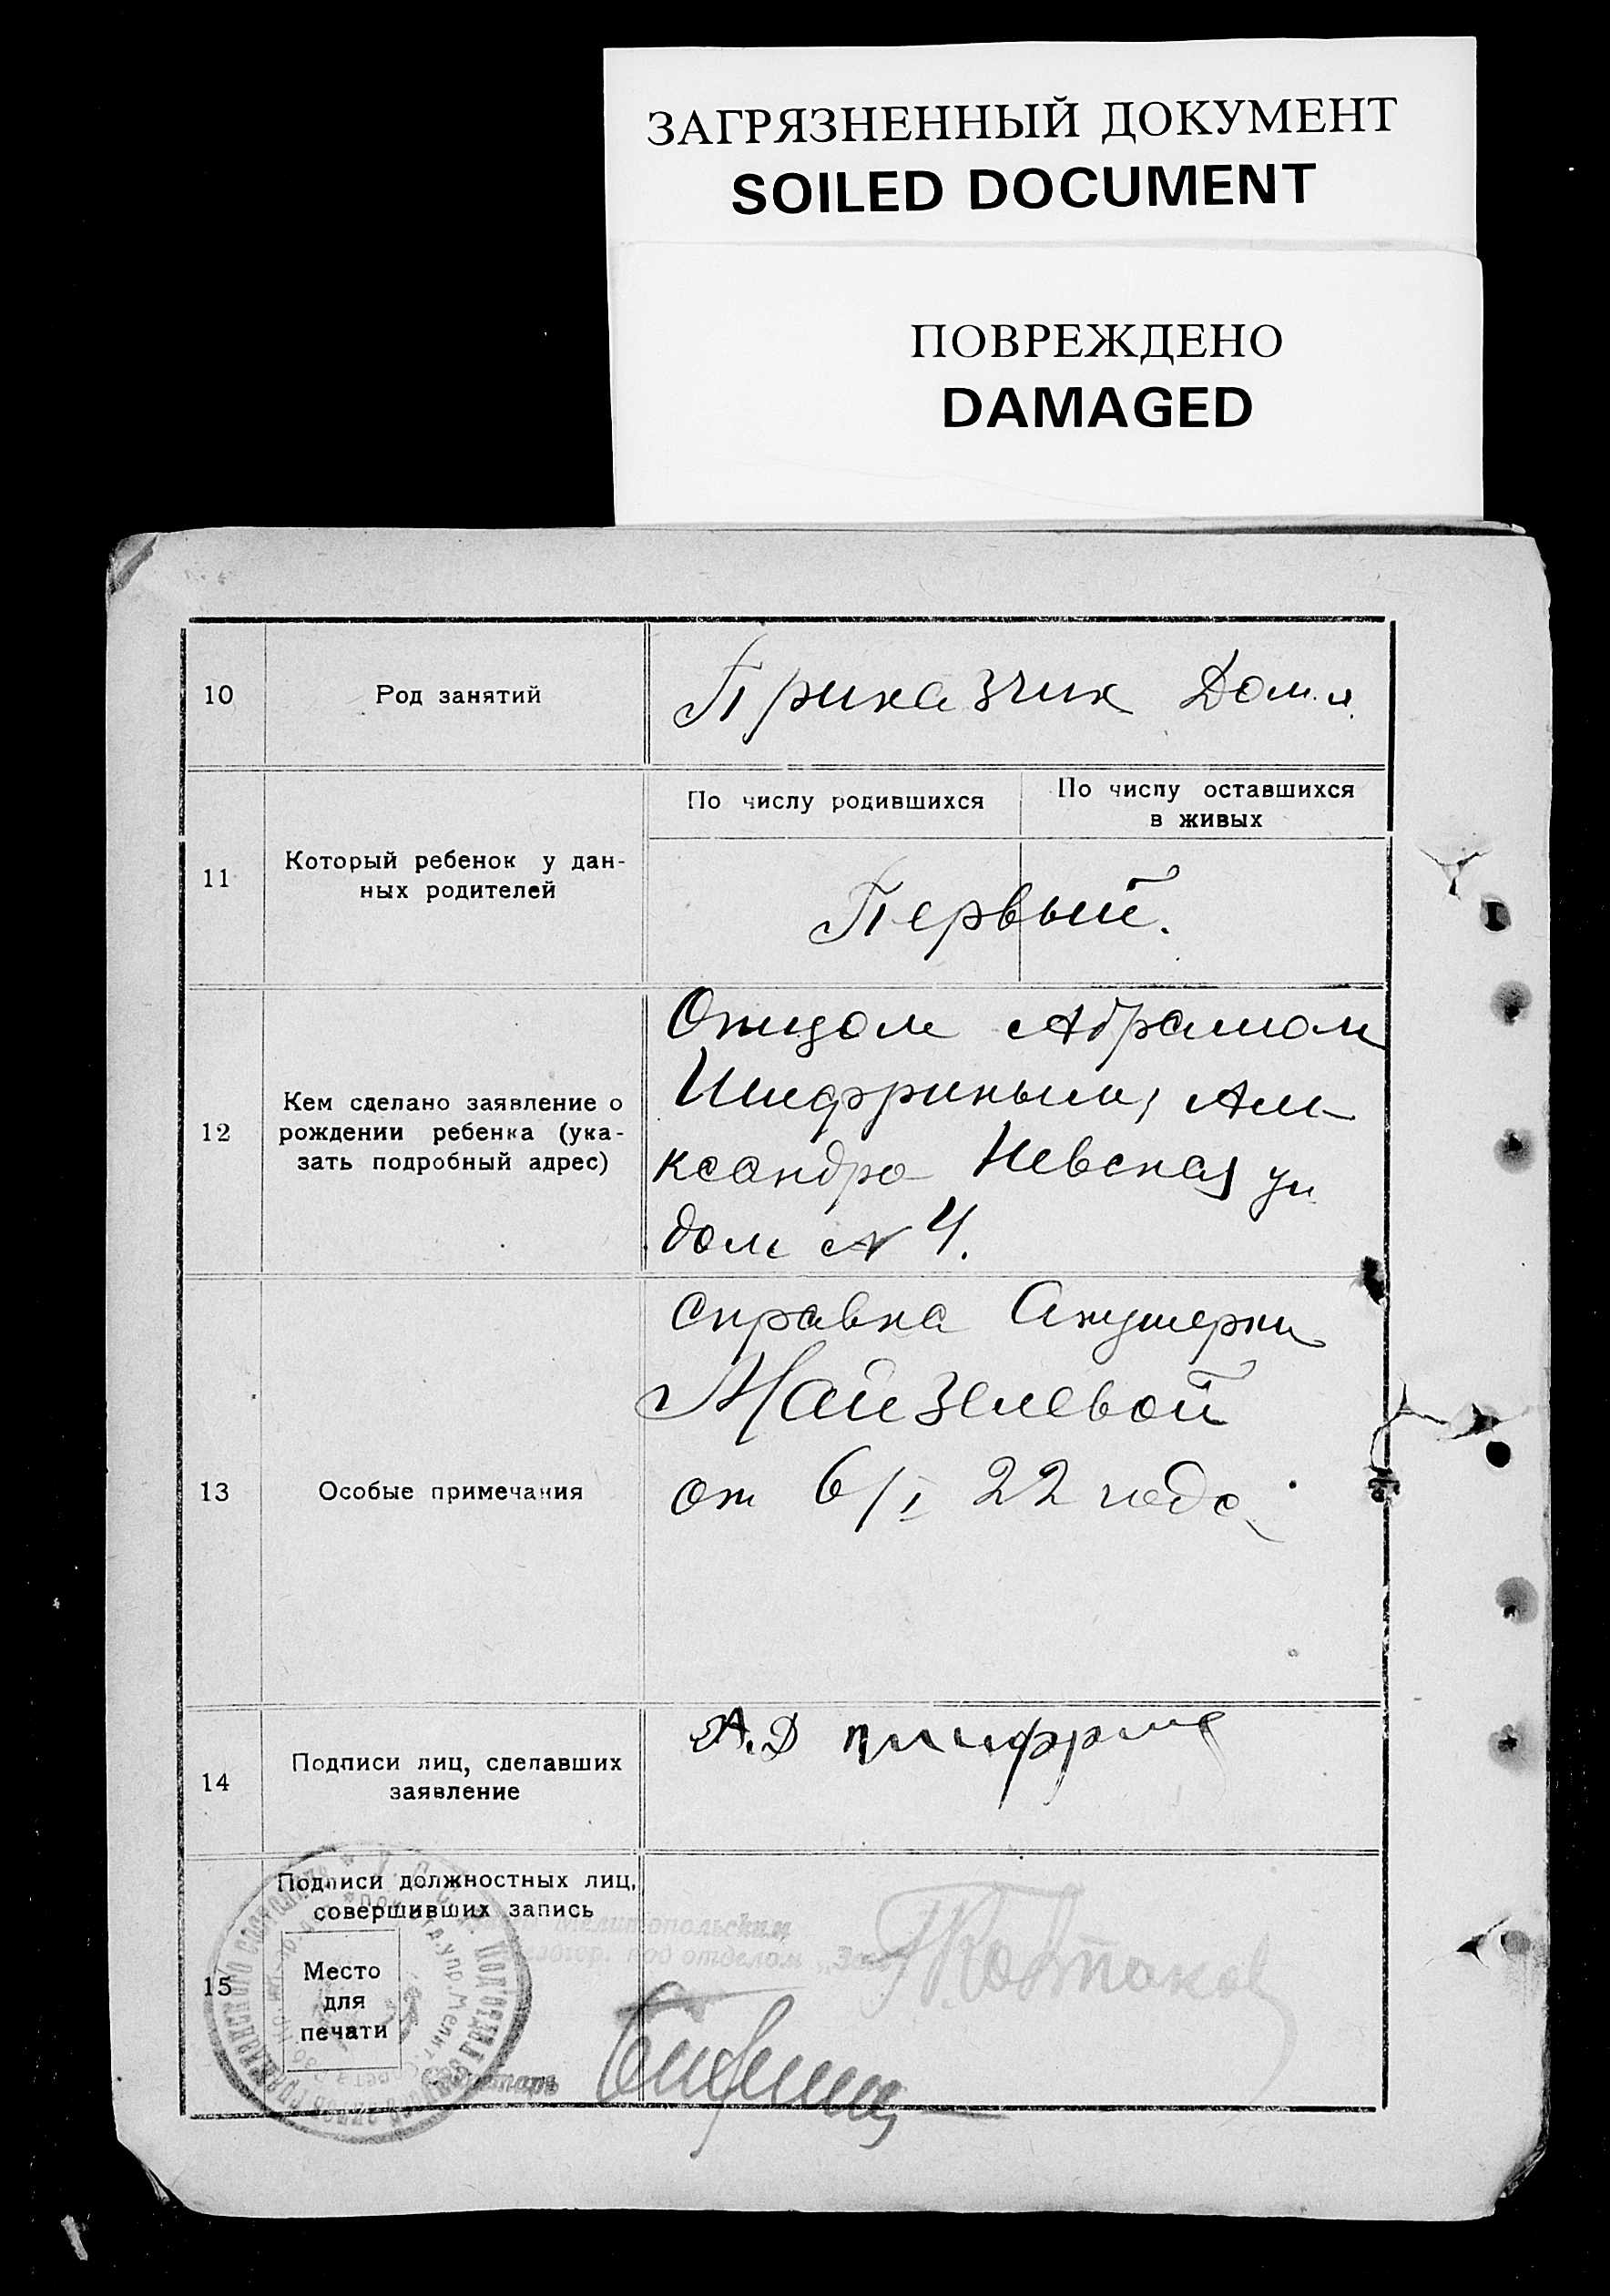 ЗАГРЯЗНЕННЫЙ ДОКУМЕНТ
SOILED DOCUMENT
ПОВРЕЖДЕНО
DAMAGED
10
Род занятий
Приказчик Дом.
11
Который ребенок у дан-
ных родителей
По числу родившихся
По числу оставшихся
в живых
Первый.
12
Кем сделано заявление о
рождении ребенка (ука-
зать подробный адрес)
Отцом Абрамом
Шифриным, Але-
ксандро Невская ул
дом № 4.
13
Особые примечания
справка Акушерки
Майзелевой
от 6/I 22 года
14
Подписи лиц, сделавших
заявление
А.Д Шифрин
15
Подписи должностных лиц,
совершивших запись
Место
для
печати
Мелитопольским
под отделом